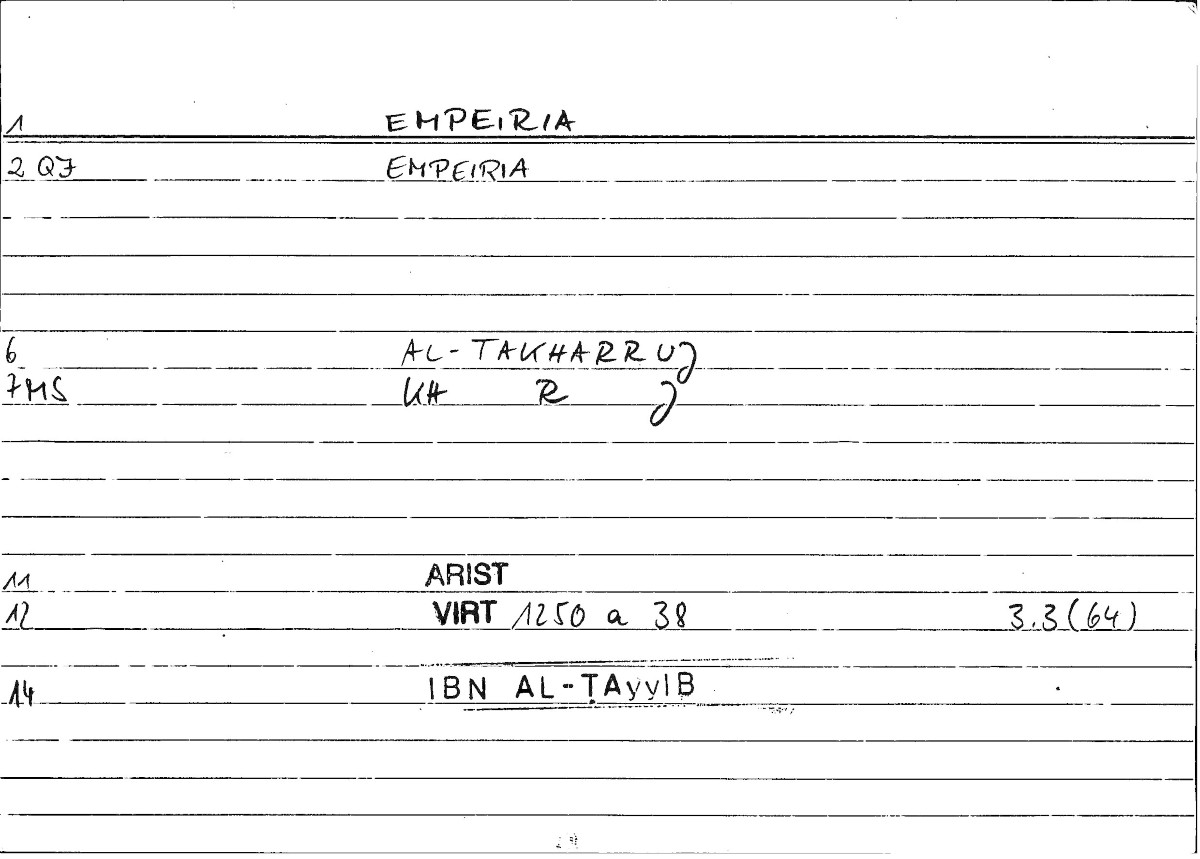 1 EMPEIRIA
2 QJ EMPEIRIA
6 AL-TAKHARRUJ
7MS KH R J
11 ARIST
12 VIRT 1250 a 38 3.3(64)
14 IBN AL-ṬAyyIB